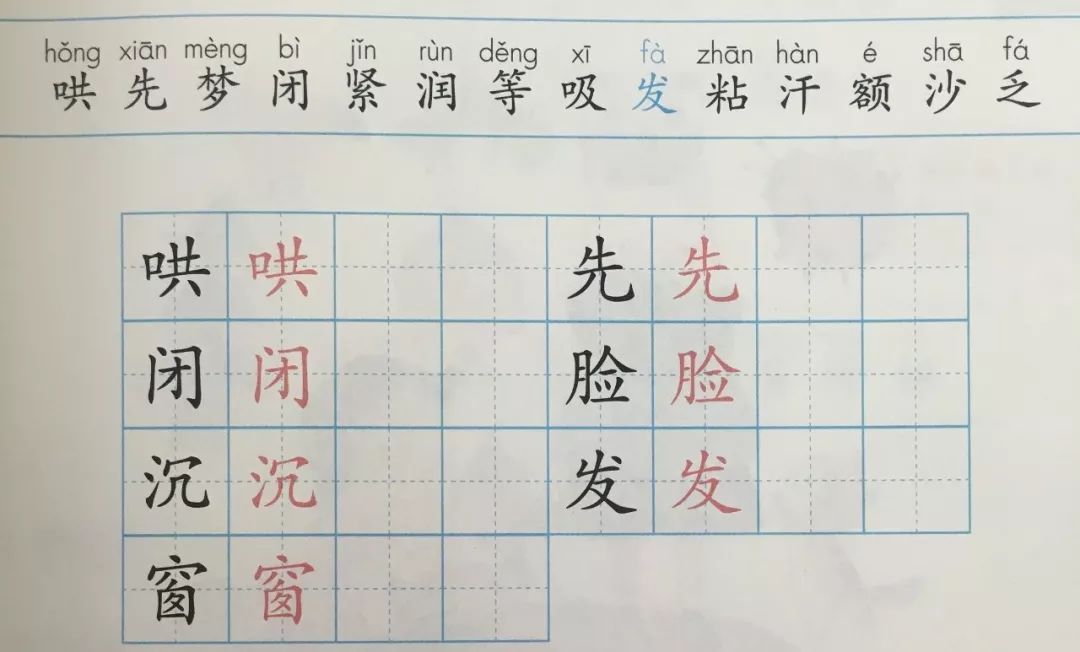 hǒng xiān mèng bì jǐn rùn děng xī fà zhān hàn é shā fá
哄 先 梦 闭 紧 润 等 吸 发 粘 汗 额 沙 乏
哄 哄 先 先
闭 闭 脸 脸
沉 沉 发 发
窗 窗